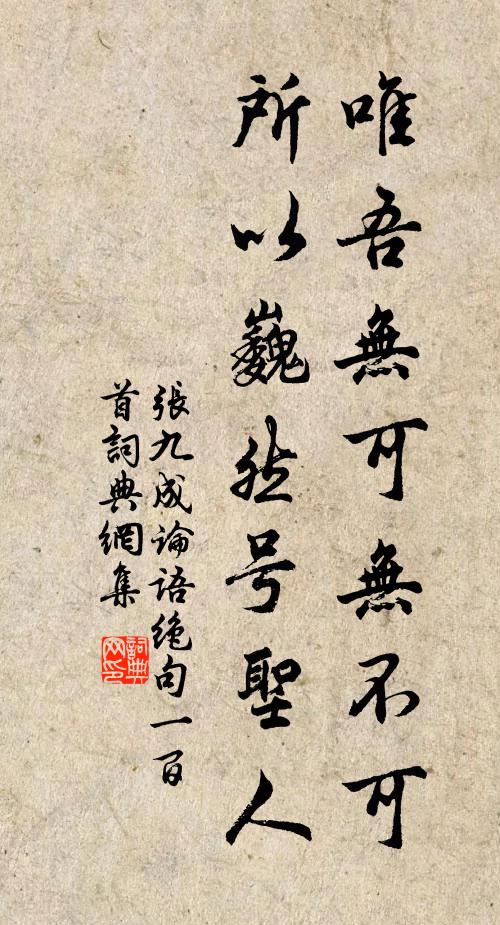 唯吾無可無不可
所以巍然号聖人
張九成論語絶句一百
首詞典網集
詞典
网印